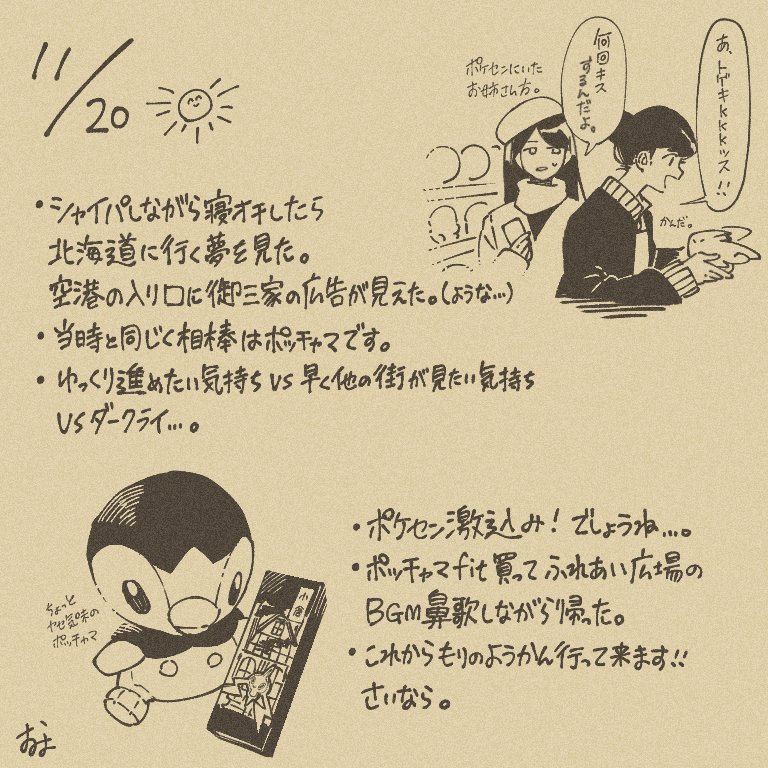 11/20
ポケセンにいた
お姉さん方。
何回キス
するんだよ。
あ、トゲキkkkッス!!
かんだ。
・シャイパしながら寝オチしたら
北海道に行く夢を見た。
空港の入り口に御三家の広告が見えた。(ような…)
・当時と同じく相棒はポッチャマです。
・ゆっくり進めたい気持ち vs 早く他の街が見たい気持ち
vsダークライ…。
ちょっと
ヤセ気味の
ポッチャマ
小倉
・ポケセン激込み! でしょうね…。
・ポッチャマfit買って ふれあい広場の
BGM鼻歌しながら帰った。
・これからもりのようかん行って来ます!!
さいなら。